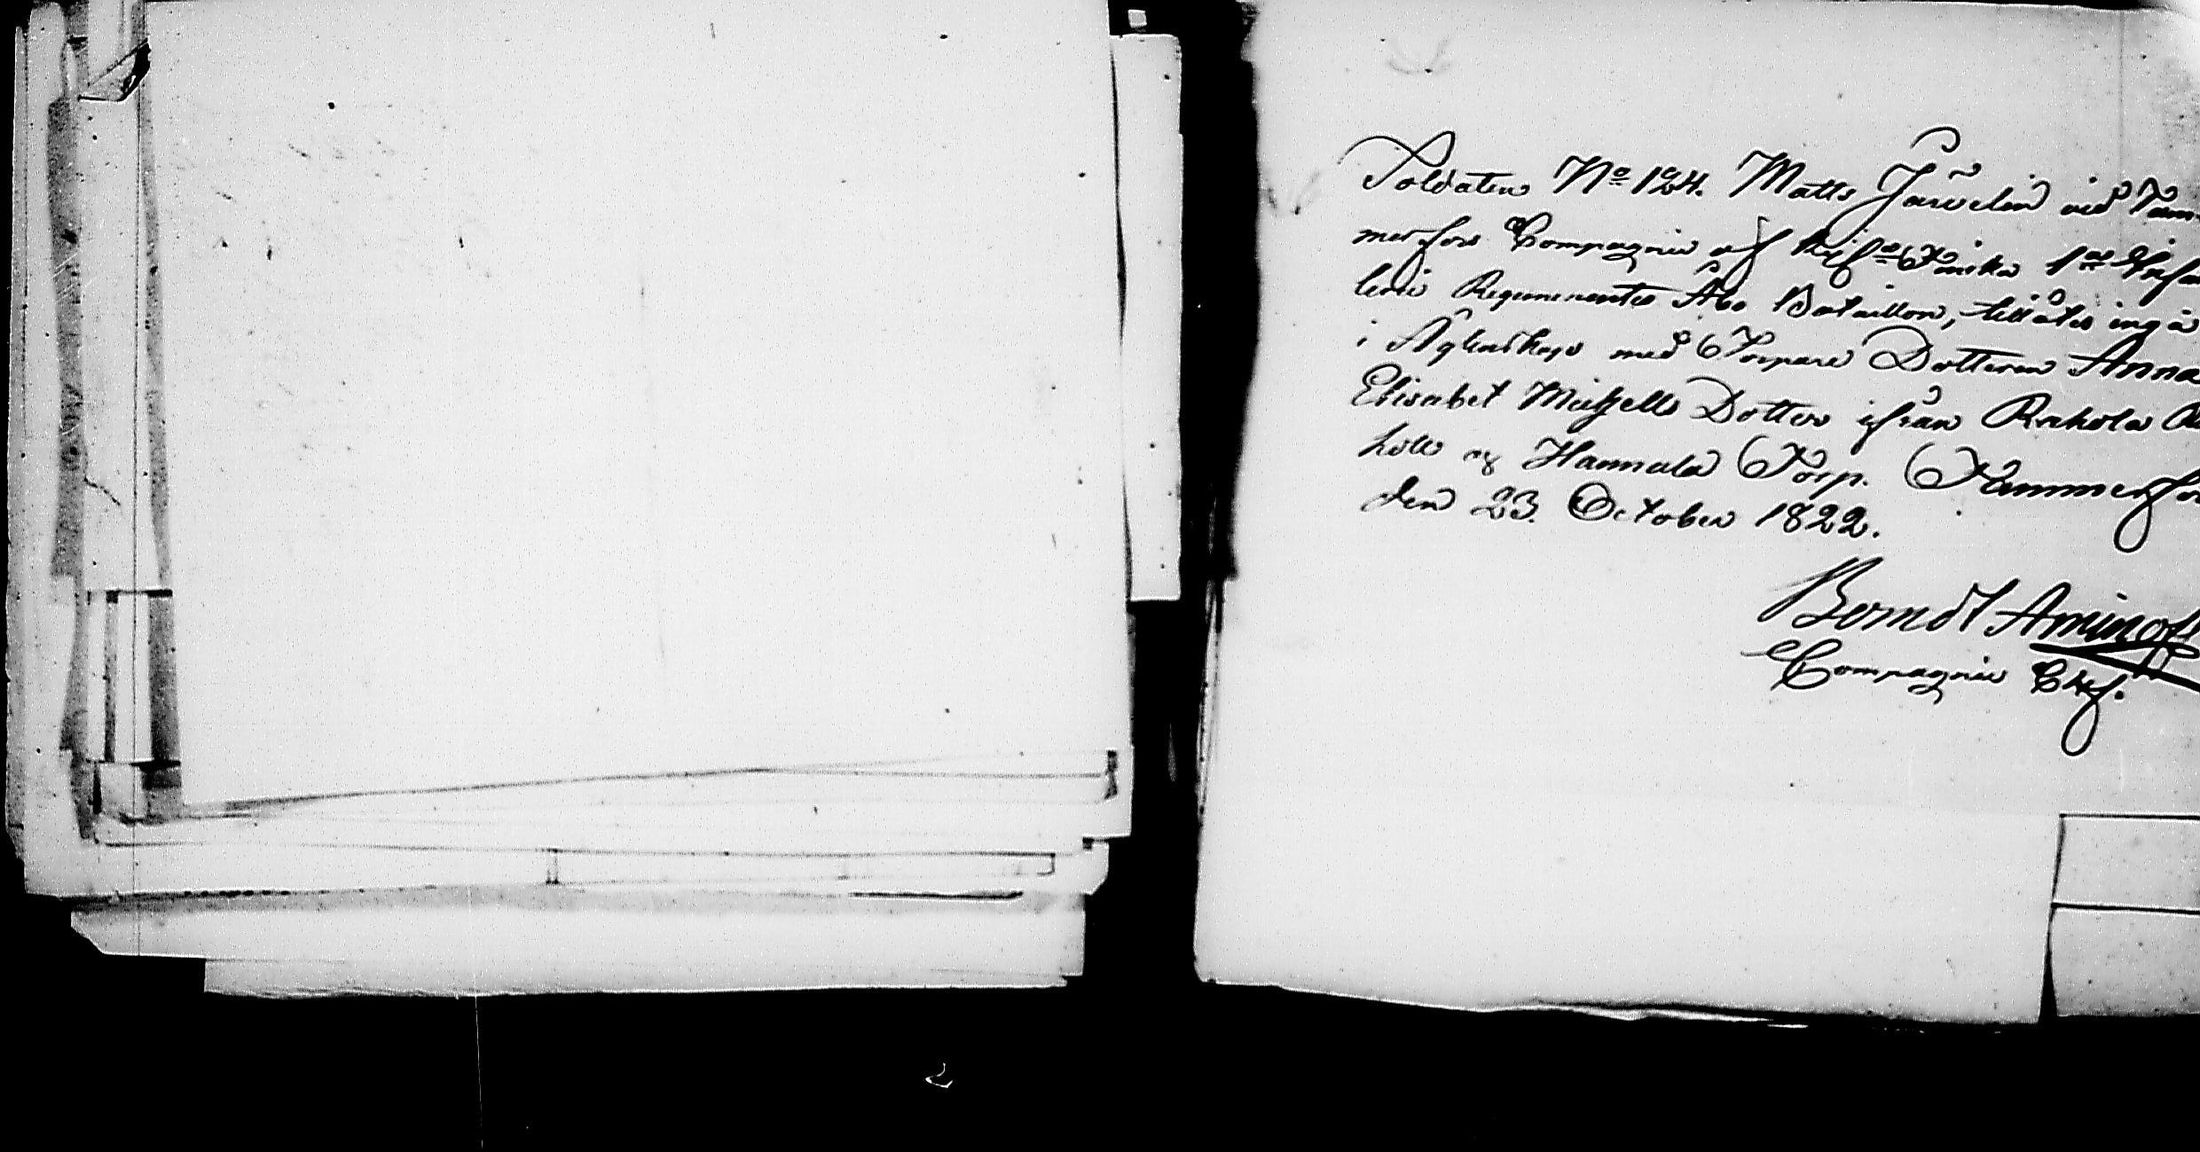 Soldaten No 124. Matts Järvelin vid Tam-
merfors Compagnie af Finska 1a Infan
terie Regementes Åbo Bataillon, tillåtes ingå
i Ägtenskap med Torpare Dotteren Anna
Elisabet Michells Dotter ifrån Rahola
håll og Hannula Torp. Tammerfors
den 23. October 1822.
Berndt Aminoff
Compagnie Chef.
2